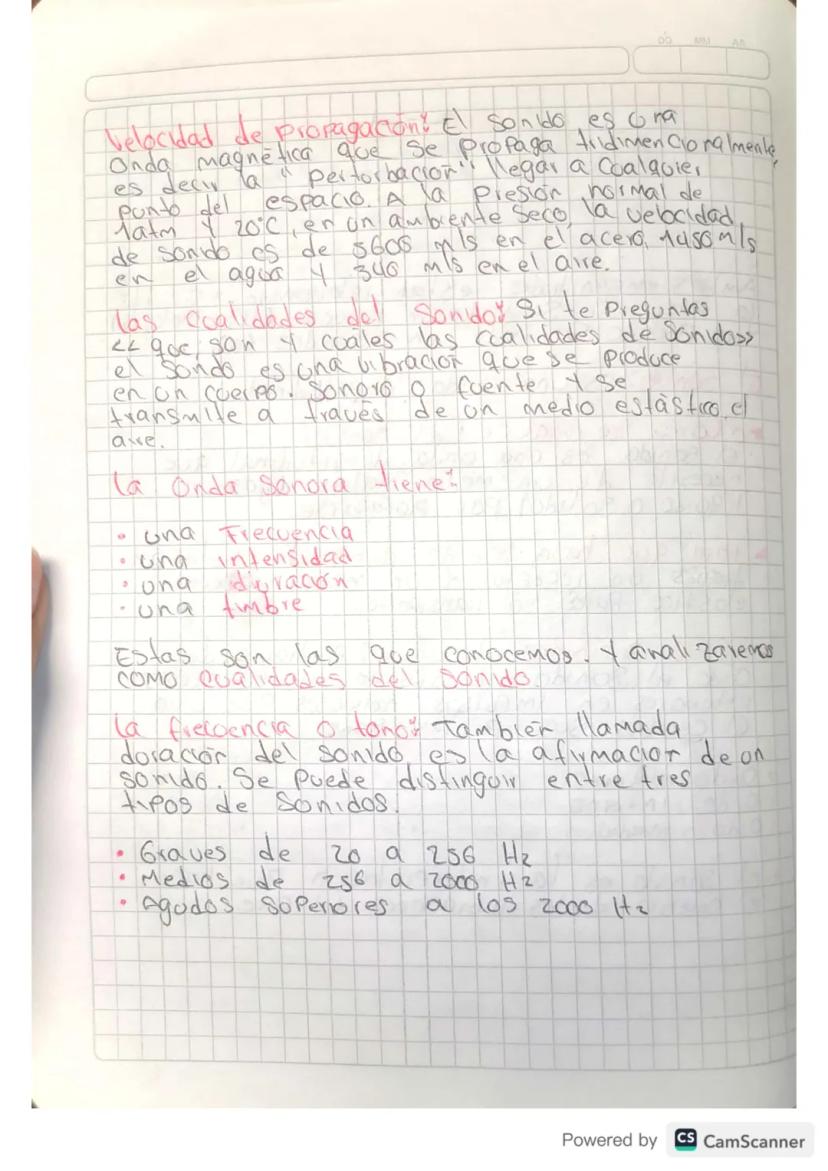 DD MM AA
Velocidad de Propagación: El sonido es una
Onda magnética que se propaga tridimencionalmente,
es decir la "pertorbación" llegar a Coalquier
punto del espacio. A la Presión normal de
1atm y 20°C, en un ambiente seco, la velocidad
de sonido es de 5600 m/s en el acero, 1450 m/s
en el agua y 340 m/s en el aire.
Las Cualidades del Sonido: Si te Preguntas
<< que son y cuales las cualidades de Sonido>>
el Sonido es una vibración que se produce
en un cuerpo. Sonoro o fuente y se
transmite a través de un medio estástico, el
aire.
La Onda Sonora tiene:
• una Frecuencia
• una intensidad
• una duración
• una timbre
Estas son las que conocemos. Y analizaremos
como cualidades del sonido.
La frecuencia o tono: También llamada
duración del sonido es la afirmación de un
sonido. Se puede distinguir entre tres
tipos de Sonidos.
• Graves de 20 a 256 Hz
• Medios de 256 a 2000 Hz
• Agudos Superiores a los 2000 Hz
Powered by CS CamScanner